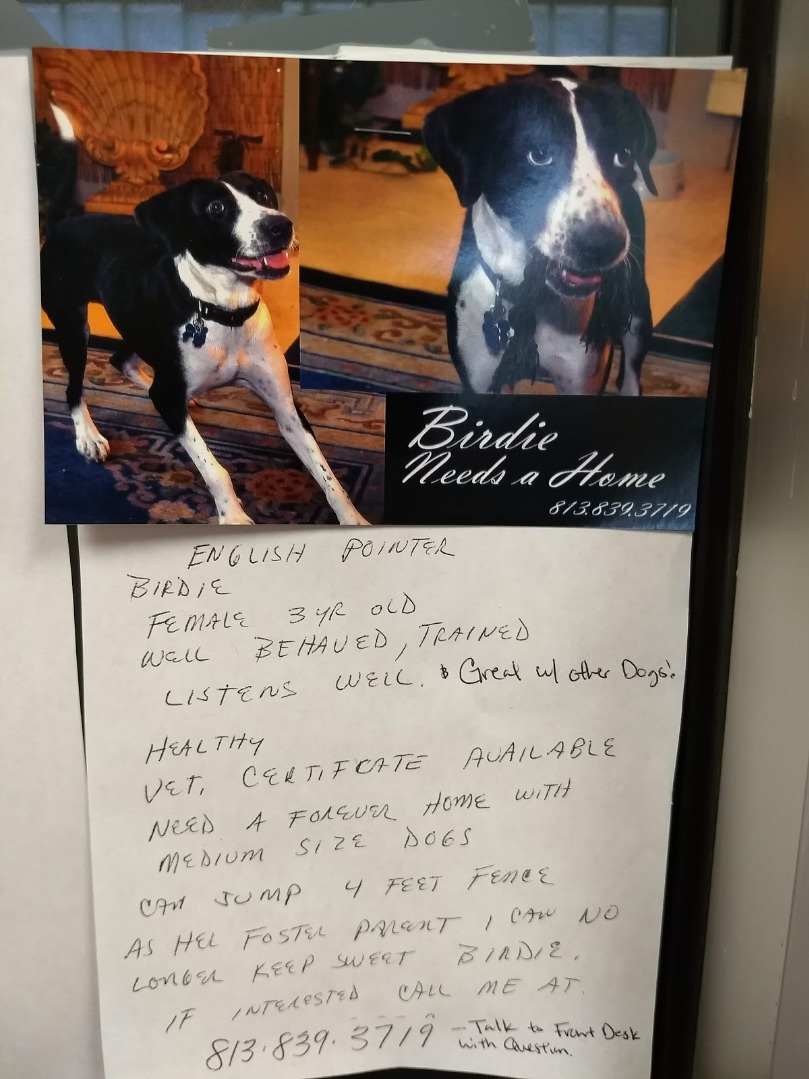 Birdie
Needs a Home
813.839.3719
ENGLISH POINTER
BIRDIE
FEMALE 3 YR OLD
WELL BEHAVED, TRAINED
LISTENS WELL. & Great w/ other Dogs!
HEALTHY
VET. CERTIFICATE AVAILABLE
NEED A FOREVER HOME WITH
MEDIUM SIZE DOGS
CAN JUMP 4 FEET FENCE
AS HER FOSTER PARENT I CAN NO
LONGER KEEP SWEET BIRDIE.
IF INTERESTED CALL ME AT.
813.839.3719 - Talk to Front Desk
with Question.